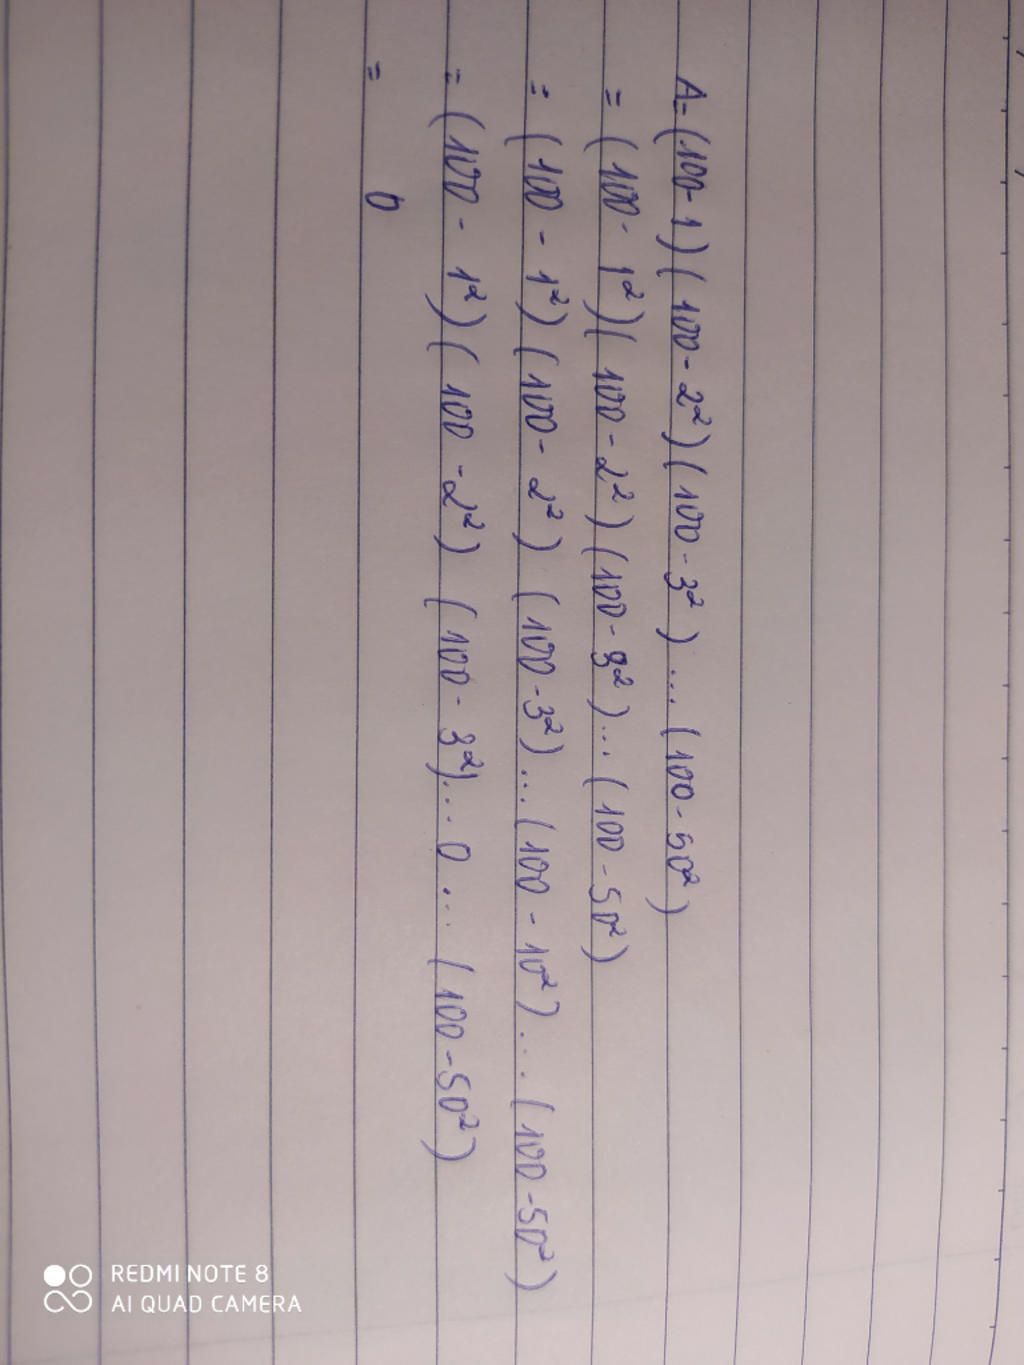 A=(100-1)(100-2²)(100-3²)...(100-50²)
=(100-1²)(100-2²)(100-3²)...(100-50²)
=(100-1²)(100-2²)(100-3²)...(100-10²)...(100-50²)
=(100-1²)(100-2²)(100-3²)...0...(100-50²)
= 0
REDMI NOTE 8
AI QUAD CAMERA